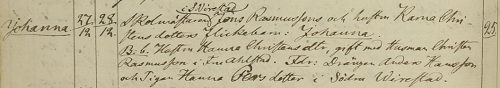 i S. Wirestad
Johanna 27/12 28/12 Skolmästaren Jöns Rasmussons och hustru Karna Chri-
stens dotters flickebarn: Johanna. 25.
B: b. Hustru Hanna Christensdtr, gift med Husman Christen
Rasmusson i Ahlstad. Fdr: Drängen Anders Hansson
och Pigan Hanna Pers dotter i Södra Wirestad.